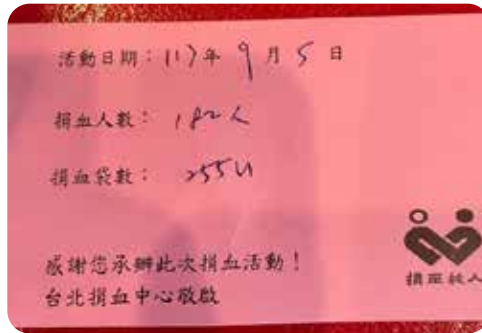 活動日期：117年 9月 5日
捐血人數：182人
捐血袋數：255U
感謝您承辦此次捐血活動！
台北捐血中心敬啟
捐血救人